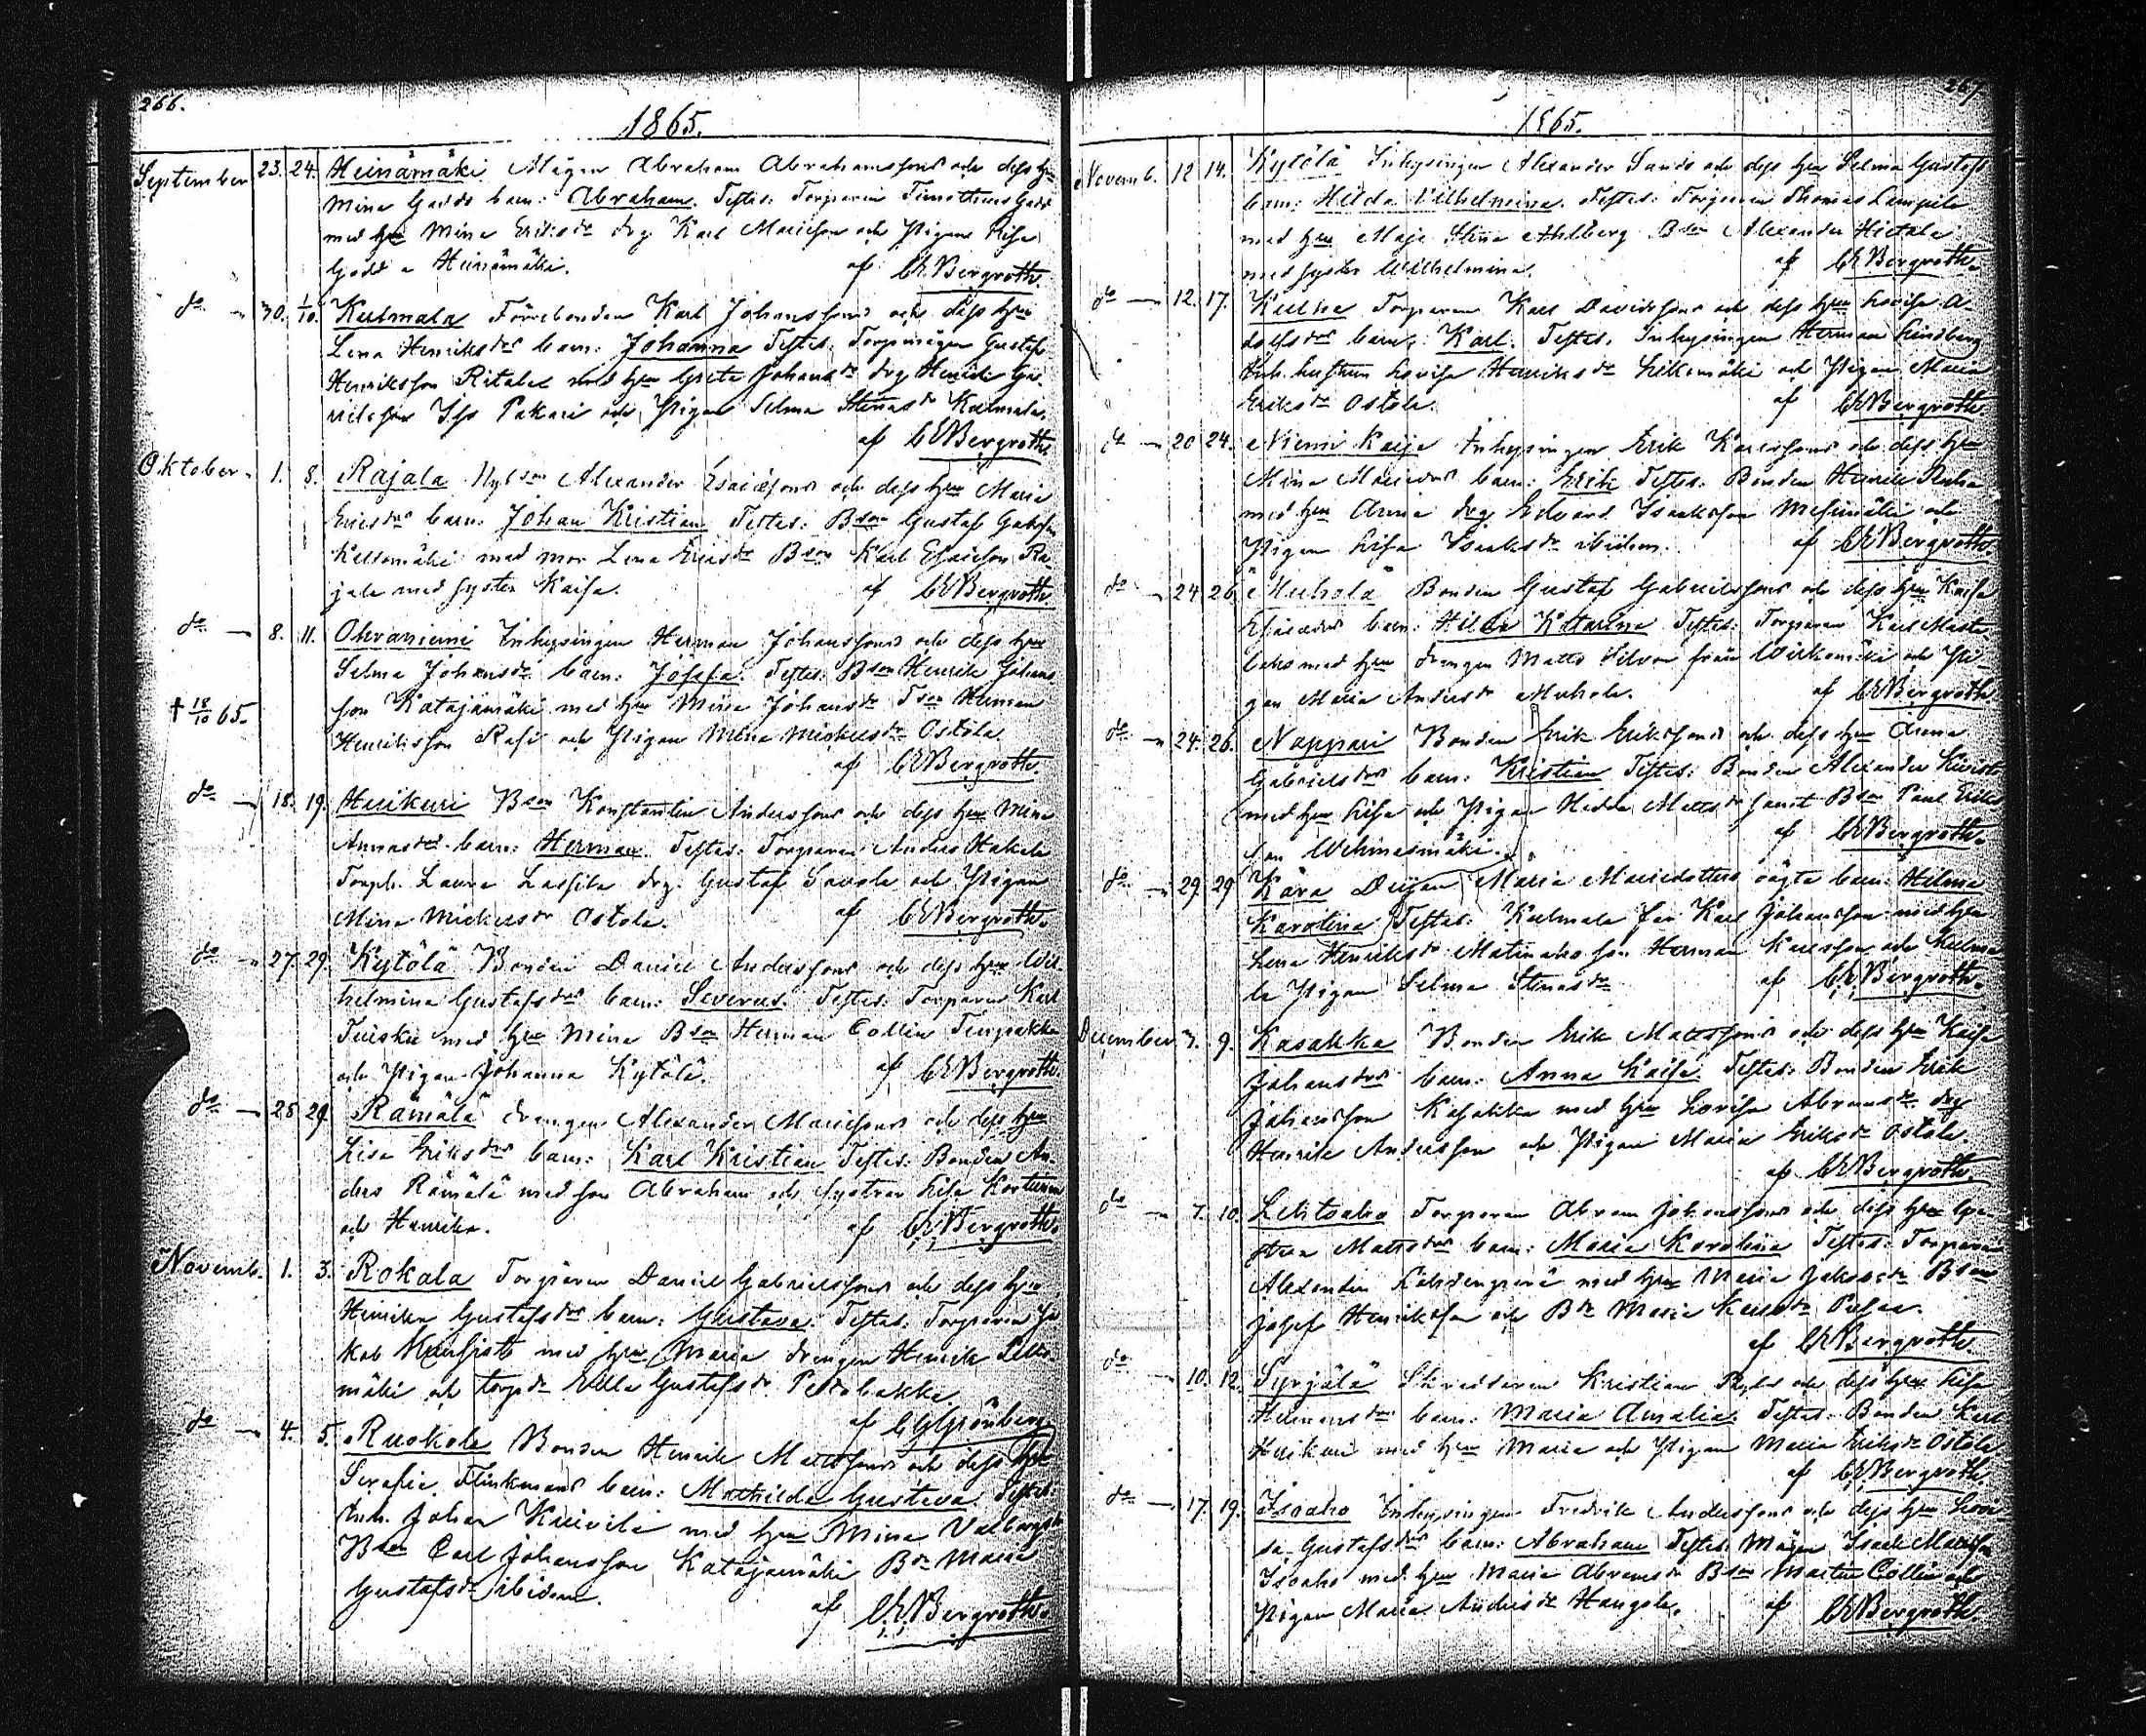 266.
1865.
September 23. 24. Heinämäki Mågen Abraham Abrahamssons och dess hu
Mina Gadds barn: Abraham. Testes: Torparen Timotheus Gadd
med hu Mina Eriksdr drg. Karl Mariesson och Pigan Lisa
Gadd a Heinämäki. af CEBergroth.
do 30. 1/10. Kulmala Förrebonden Karl Johanssons och dess hu
Lena Henriksdrs barn: Johanna Testes: Torpmågen Gustaf
Henriksson Ritalas med hu Greta Johansdr drg Henrik Gab-
rielsson Iso Pakari och Pigan Selma Stinasdr Kulmala.
af CEBergroth.
Oktober 1. 8. Rajala Nybson Alexander Esaiæsons och dess hu Maria
Ericsdrs barn: Johan Kristian Testes: Bson Gustaf Gabrsson
med mor Lena Ericsdr Bson Karl Esaiæson Ra-
jala med syster Kaisa. af CEBergroth.
do 8. 11. Ohraniemi Inhysingen Herman Johanssons och dess hu
Selma Johansdr barn: Josefa. Testes: Bson Henrik Johans-
† 18/10 65. son Katajamäki med hu Mina Johansdr Tson Herman
Henriksson Rasi och Pigan Mina Mickelsdr Ostola.
af CEBergroth.
do 18. 19. Huikuri Bson Konstantin Anderssons och dess hu Mina
Annasdrs barn: Herman. Testes: Torparen Anders Hakala
Torph. Laura Lassila drg. Gustaf Savola och Pigan
Mina Mickelsdr Ostola. af CEBergroth.
do 27. 29. Kytölä Bonden Daniel Anderssons och dess hu Wil-
helmina Gustafsdrs barn: Severus. Testes: Torparen Karl
Tuisku med hu Mina Bson Herman Collin
och Pigan Johanna Kytölä. af CEBergroth.
do 28 29. Rämälä drengen Alexander Mariæsons och dess hu
Lisa Eriksdrs barn: Karl Kristian Testes: Bonden An-
ders Rämälä med son Abraham och systrar Lisa
och Henrika. af CEBergroth.
Novemb. 1. 3. Rokala Torparen Daniel Gabrielssons och dess hu
Henrika Gustafsdrs barn: Gustava. Testes: Torparen Ja-
kob med hu Maria drengen Henrik
mäki och torpdr Ulla Gustafsdr
af CGGrönberg
do 4. 5. Ruokola Bonden Henrik Mattssons och dess hu
Serafia Flinkmans barn: Mathilda Gustava. Testes:
Inh. Johan med hu Mina
Bson Carl Johansson Katajamäki Bdr Maria
Gustafsdr ibidem. af CEBergroth.
267
1865.
Novemb. 12 14. Kytölä Inhysingen Alexander Sands och dess hu Selma Gustafs
barn: Hilda Vilhelmina. Testes: Torparen Thomas Lampila
med hu Maja Stina Ahlberg Bson Alexander Hietala
med syster Wilhelmina. af CEBergroth.
do 12. 17. Torparen Karl Davidssons och dess hu Lovisa A-
dolfsdrs barn: Karl. Testes: Inhysingen Herman Lindberg
Inh. hustrun Lovisa Henriksdr och Pigan Maria
Eriksdr Ostola. af CEBergroth
do 20 24. Niemi Kaija Inhysingen Erik Karlssons och dess hu
Mina Mariædrs barn: Erik Testes: Bonden Henrik
med hu Anna drg Edvard Isaaksson och
Pigan Lisa Isaaksdr ibidem. af CEBergroth.
do 24 26 Muhola Bonden Gustaf Gabrielssons och dess hu Kaisa
Esaiædrs barn: Hilda Katarina Testes: Torparen Karl
med hu drengen Matts Silvon från och Pi-
gan Maria Andersdr Muhola. af CEBergroth
do 24. 26. Nappari Bonden Erik Erikssons och dess hu Anna
Gabrielsdrs barn: Kristian Testes: Bonden Alexander
med hu Lisa och Pigan Hedda Mattsdr samt Bson Paul Eriks
son Wehmasmäki. af CEBergroth.
do 29. 29. Pigan Maria Mariædotters oägta barn: Hilma
Karolina Testes: Kulmala far Karl Johansson med hu
Lena Henriksdr son Herman Karlsson och Kulma-
la Pigan Selma Stinasdr af CEBergroth.
December 7. 9. Kasakka Bonden Erik Mattssons och dess hu Kaisa
Johansdrs barn: Anna Kaisa. Testes: Bonden Erik
Johansson Kasakka med hu Lovisa Abramsdr drg
Henrik Andersson och Pigan Maria Eriksdr Ostola.
af CEBergroth.
do 7. 10. Lehtoaho Torparen Abram Johanssons och dess hu
Mattsdrs barn: Maria Karolina Testes: Torparen
Alexander med hu Maria Jakobsdr Bson
Josef Henriksson och Bdr Maria Karlsdr
af CEBergroth.
do 10. 12. Syrjälä Skräddaren Kristian och dess hu Lisa
Hermansdrs barn: Maria Amalia. Testes: Bonden Karl
Huikuri med hu Maria och Pigan Maria Eriksdr Ostola.
af CEBergroth.
do 17. 19. Isoaho Inhysingen Fredrik Anderssons och dess hu Lovi-
sa Gustafsdrs barn: Abraham Testes: Mågen Isaak
Isoaho med hu Maria Abramsdr Bson Martin Collin och
Pigan Maria Andersdr Hangola. af CEBergroth.